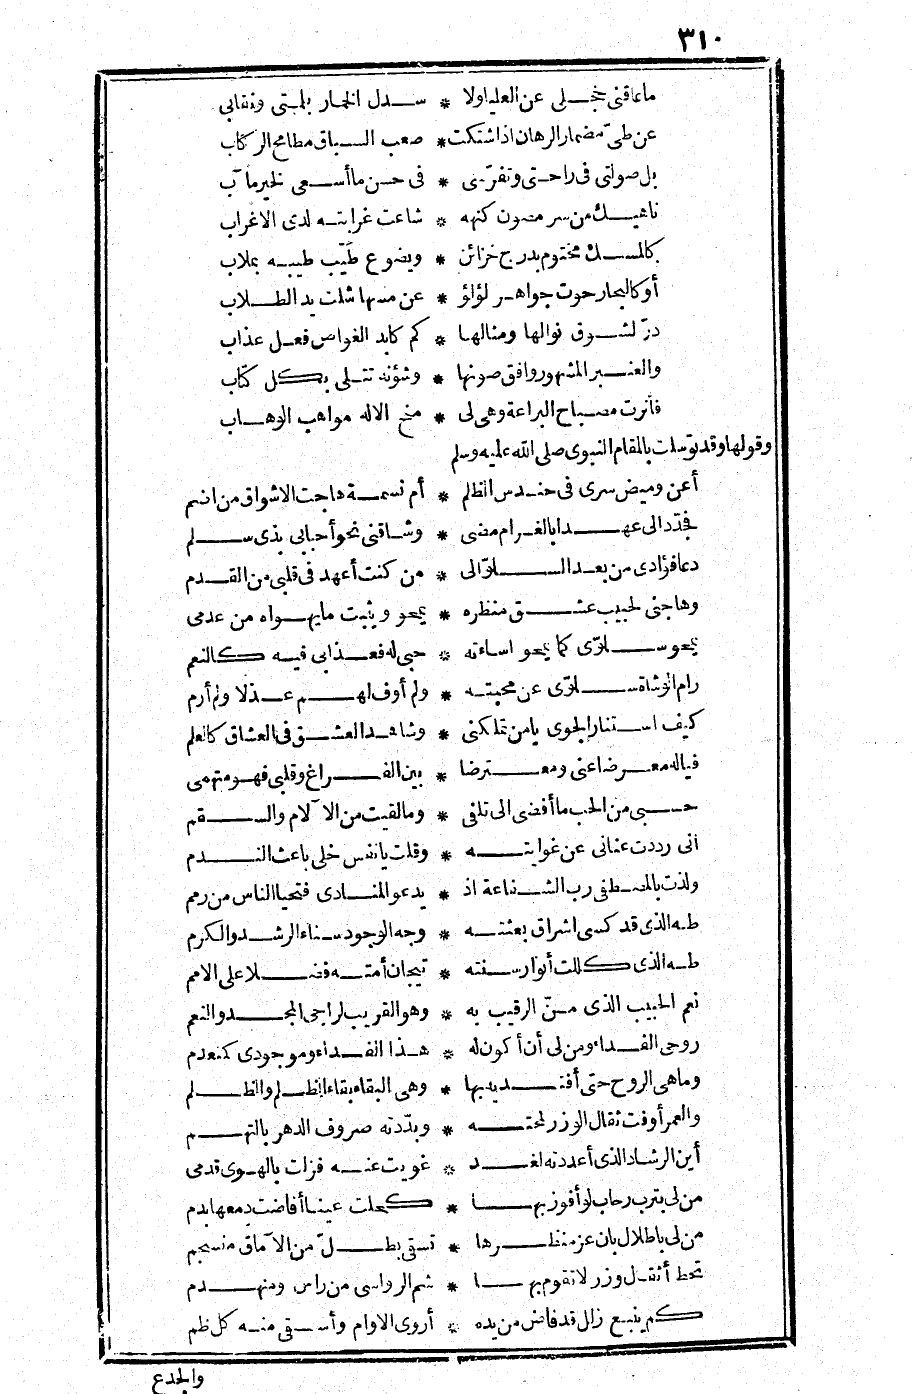 ٣١٠
ماعاقنى خجلى عن العليا ولا * سدل الخمار بلمتى ونقابى
عن طىّ مضمار الرهان اذا اشتكت * صعب السباق مطامح الركاب
بل صولتى فى راحتى وتفرّسى * فى حسن ما أسعى لخير مآب
ناهيك من سر مصون كنهه * شاعت غرابته لدى الاغراب
كالمسك مختوم بدرج خزائن * ويضوع طيّب طيبه بملاب
أو كالبحار حوت جواهر لؤلؤ * عن مسها شلت يد الطلاب
درّ لشوق نوالها ومنالها * كم كابد الغواص فصل عذاب
والعنبر المشهور وافق صونها * وشؤنه تتلى بكل كتاب
فأنرت مصباح البراعة وهى لى * منح الاله مواهب الوهاب
وقولها وقد توسلت بالمقام النبوى صلى الله عليه وسلم
أعن وميض سرى فى حندس الظلم * أم نسمة هاجت الاشواق من اضم
فجدّد الى عهدا بالغرام مضى * وشاقنى نحو أحبابى بذى سلم
دعا فؤادى من بعد السلوّ الى * من كنت أعهد فى قلبى من القدم
وهاجنى لحبيب عشق منظره * يمحو ويثبت ما يهواه من عدمى
يمحو سلوّى كما يمحو اساءته * حبى له فعذابى فيه كالنعم
رام الوشاة سلوّى عن محبته * ولم أوف لهم عذلا ولم أرم
كيف استتار الجوى يامن تملكنى * وشاهد العشق فى العشاق كالعلم
فياله معرضا عنى ومعترضا * بين الفراغ وقلبى فهو متهمى
حسبى من الحب ما أفضى الى تلفى * وما لقيت من الآلام والسقم
انى رددت عنانى عن غوايته * وقلت يانفس خلى باعث الندم
ولذت بالمصطفى رب الشفاعة اذ * يدعو المنادى فتحيا الناس من رمم
طه الذى قد كسى اشراق بعثته * وجه الوجود سناء الرشد والكرم
طه الذى كللت أنوار سنته * تيجان أمته فضلا على الامم
نعم الحبيب الذى منّ الرقيب به * وهو القريب لراجى المجد والنعم
روحى الفداء ومن لى أن أكون له * هذا الفداء وموجودى كمنعدم
وما هى الروح حتى أفتديه بها * وهى البقاء بقاء الظلم والظلم
والعمر أوفت ثقال الوزر لمحته * وبدّدته صروف الدهر بالتهم
أين الرشاد الذى أعددته لغد * غويت عنه فزلت بالهوى قدمى
من لى بترب رحاب لو أفوز بها * كحلت عينا أفاضت دمعها بدم
من لى باطلال بان عز منظرها * تسقى بطلّ من الآماق منسجم
تحط أثقل وزر لا تقوم بها * شم الرواسى من راس ومنهدم
كم ينبع زلال قد فاض من يده * أروى الاوام وأسقى منه كل ظم
والجدع